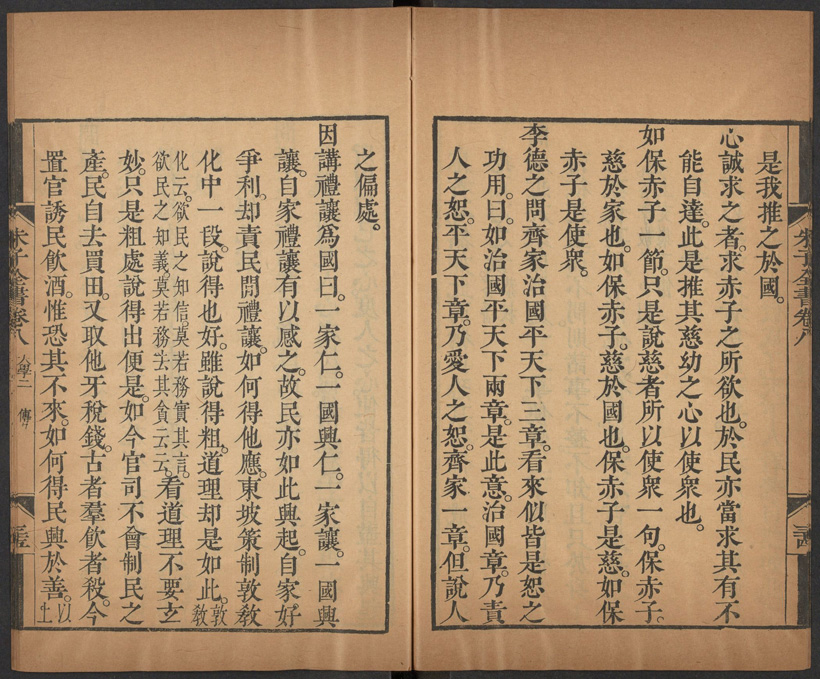 是我推之於國。
心誠求之者。求赤子之所欲也。於民亦當求其有不
能自達。此是推其慈幼之心以使衆也。
如保赤子一節。只是說慈者所以使衆一句。保赤子。
慈於家也。如保赤子。慈於國也。保赤子是慈。如保
赤子是使衆。
李德之問齊家治國平天下三章。看來似皆是恕之
功用。曰。如治國平天下兩章。是此意。治國章。乃責
人之恕。平天下章。乃愛人之恕。齊家一章。但說人
之偏處。
因講禮讓爲國曰。一家仁。一國興仁。一家讓。一國興
讓。自家禮讓有以感之。故民亦如此興起。自家好
爭利。却責民間禮讓。如何得他應。東坡策制敦敎
化中一段。說得也好。雖說得粗。道理却是如此。敦敎
化云。欲民之知信。莫若務實其言。
欲民之知義。莫若務去其貪云云。看道理不要玄
妙。只是粗處說得出便是。如今官司不會制民之
產。民自去買田。又取他牙稅錢。古者羣飮者殺。今
置官誘民飮酒。惟恐其不來。如何得民興於善。以上
朱子全書卷八
朱子全書卷八 大學二